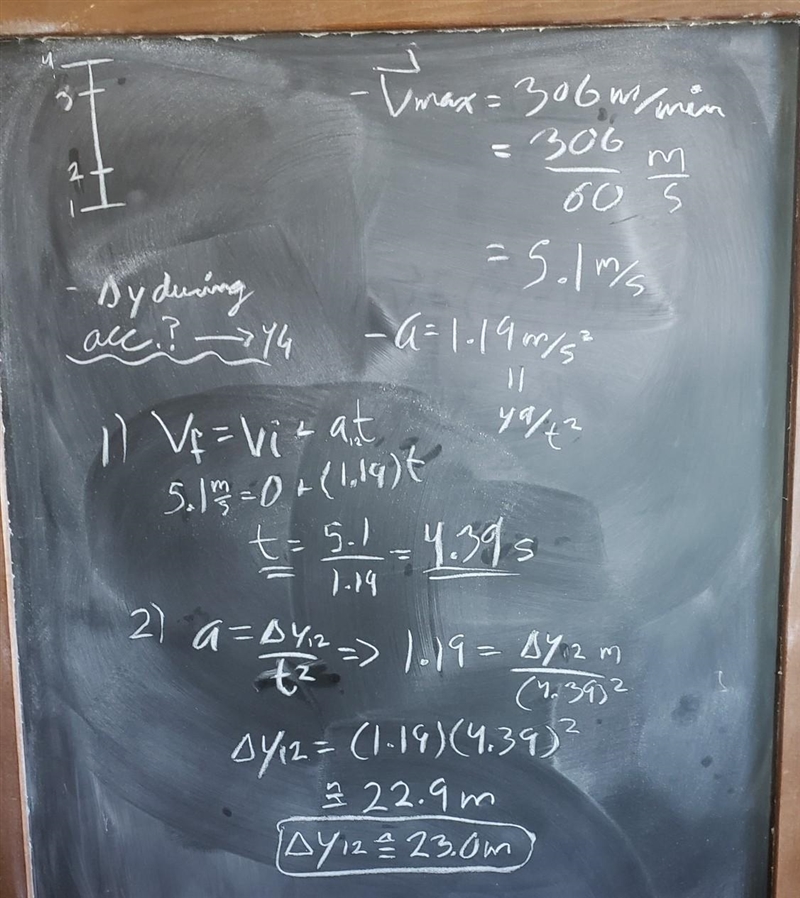 4
3
2
1
- V⃗max = 306 m/min
= 306/60 m/s
= 5.1 m/s
- Δy during
acc.? → y4
- a = 1.19 m/s²
||
y9/t²
1) Vf = Vi + a₁₂t
5.1 m/s = 0 + (1.19)t
t = 5.1/1.19 = 4.39 s
2) a = Δy₁₂/t² => 1.19 = Δy₁₂ m/(4.39)²
Δy₁₂ = (1.19)(4.39)²
≅ 22.9 m
Δy₁₂ ≅ 23.0 m